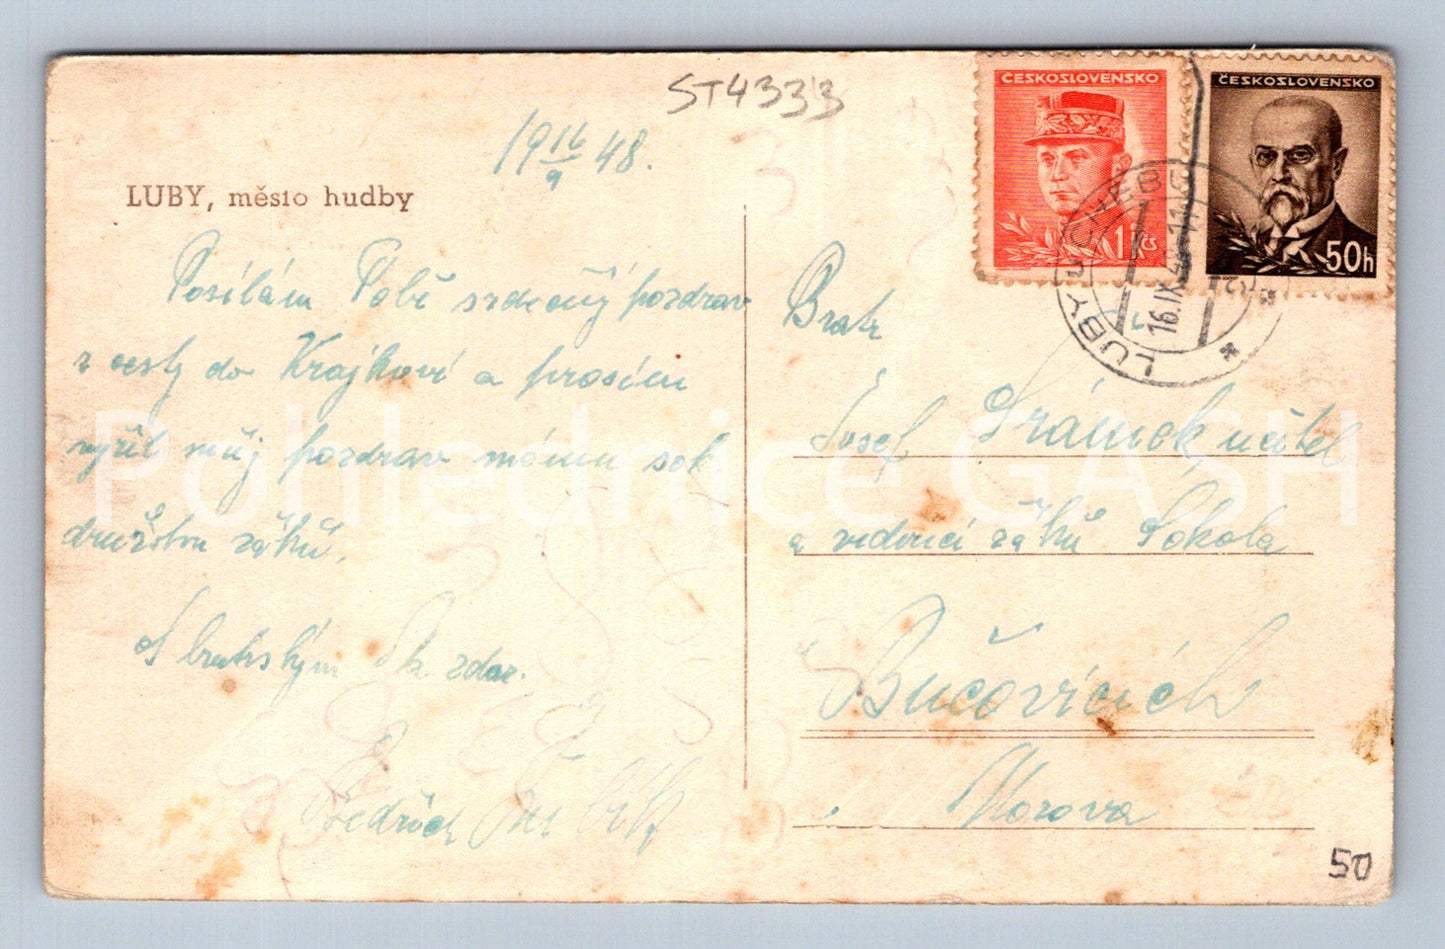 ST4333
19 16/9 48.
LUBY, město hudby
Posílám Tobě srdečný pozdrav
z cesty do Krajkové a prosím
vyřiď můj pozdrav mému sok
družstvu žáků.
S bratrským Na zdar.
Bedřich
ČESKOSLOVENSKO
1 Kčs
ČESKOSLOVENSKO
50h
LUBY U CHEBU
16.IX.48-11
Bratr
Josef Srámek učitel
a vedoucí žáků Sokola
Bučovicích
Morava
50
Pohlednice GASH